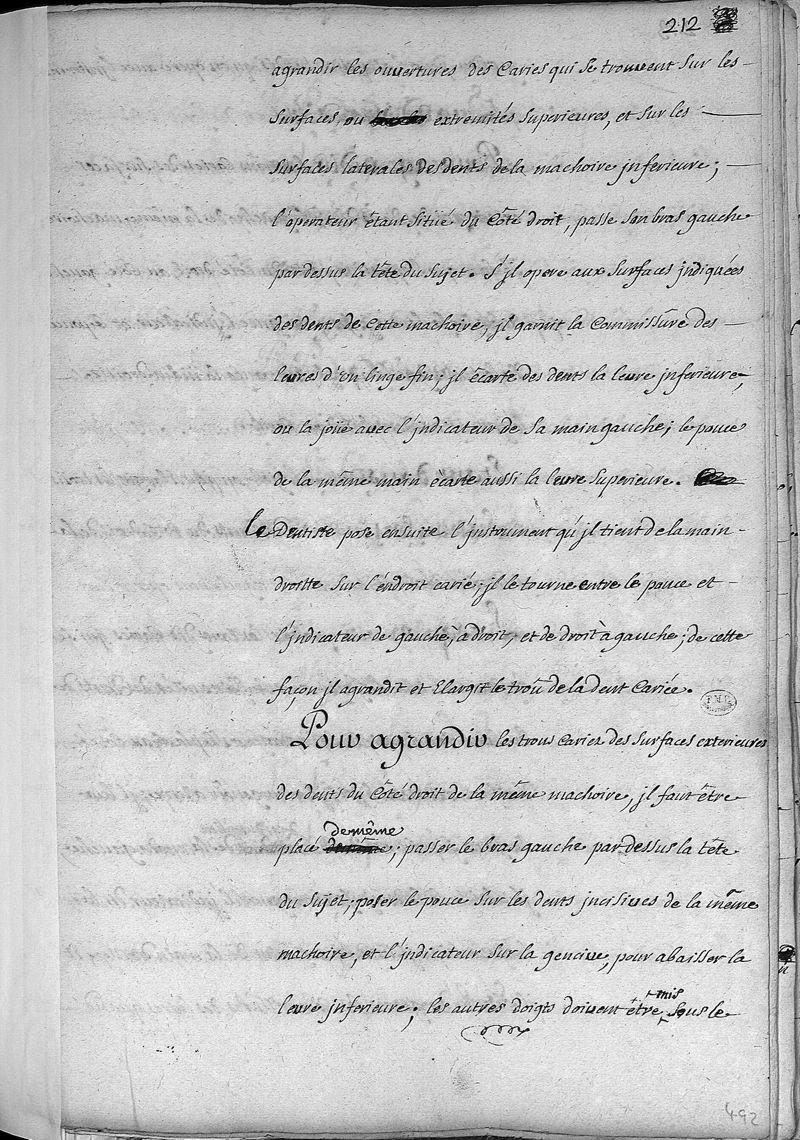 212
agrandir les ouvertures des Caries qui se trouvent sur les
surfaces, ou extremités superieures, et sur les
surfaces laterales des dents de la machoire jnferieure;
l'operateur êtant situé du Côté droit, passe son bras gauche
par dessus la tête du sujet. S'jl opere aux surfaces jndiquées
des dents de Cette machoire, jl garnit la Commissure des
levres d'un linge fin; jl écarte des dents la levre jnferieure,
ou la joüe avec l'jndicateur de sa main gauche; le pouce
de la même main écarte aussi la levre superieure.
le Dentiste pose ensuite l'jnstrument qu'jl tient de la main
droitte sur l'éndroit carié; jl le tourne entre le pouce et
l'jndicateur de gauche, à droit, et de droit à gauche; de cette
façon jl agrandit et Elargit le troû de la dent Cariée.
Pour agrandir les trous Cariez des surfaces exterieures
des dents du Côté droit de la même machoire, jl faut être
demême
placé ; passer le bras gauche par dessus la tête
du sujet; poser le pouce sur les dents jncisives de la même
machoire, et l'jndicateur sur la gencive, pour abaisser la
mis
levre jnferieure; les autres doigts doivent être sous le
492